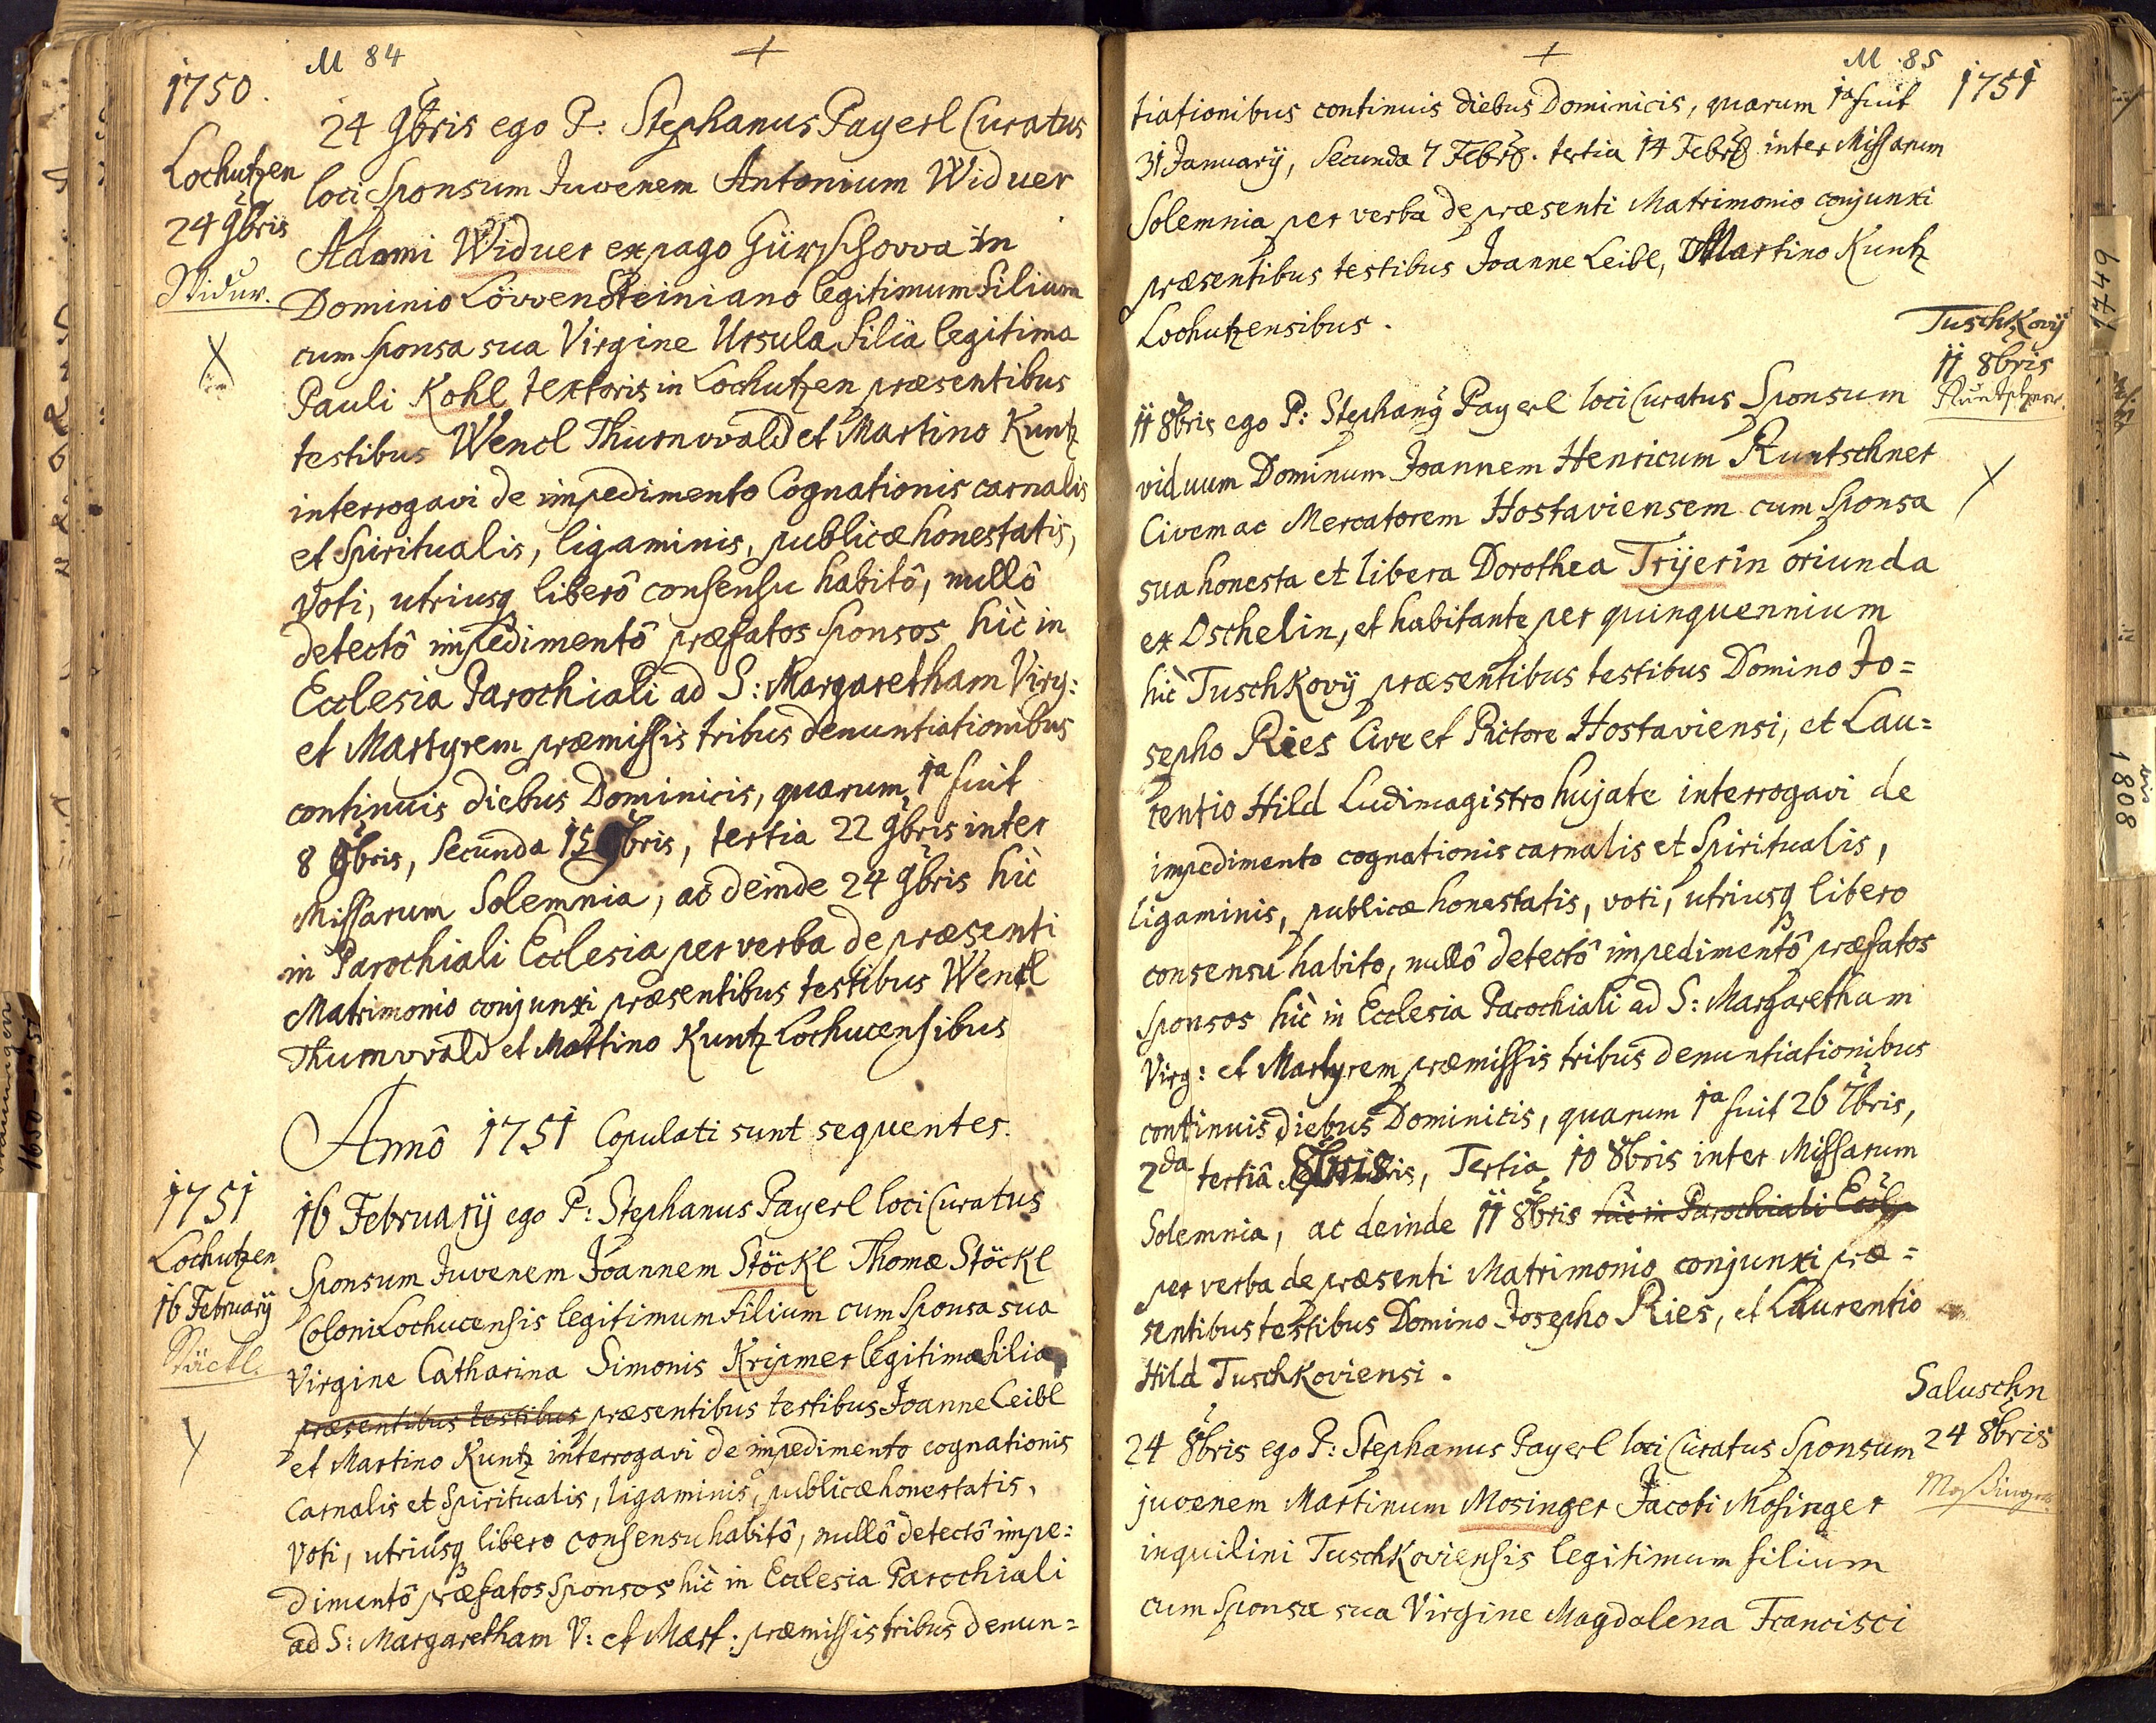 M 84
1750.
24 9bris ego P: Stephanus Payerl Curatus
Lochutzen
24 9bris
Widur.
loci Sponsum Juvenem Antonium Widuer
Adami Widuer ex pago Gürschovva in
Dominio Lövvensteiniano legitimum filium
cum sponsa sua Virgine Ursula filia legitima
Pauli Kohl textoris in Lochutzen præsentibus
testibus Wencl Thurnvvald et Martino Kuntz
interrogavi de impedimento Cognationis carnalis
et Spiritualis, ligaminis, publicæ honestatis,
voti, utriusq liberô consensu habitô, nullô
detectô impedimentô præfatos sponsos hìc in
Ecclesia Parochiali ad S: Margaretham Virg:
et Martyrem præmissis tribus denuntiationibus
continuis diebus Dominicis, quarum 1a fuit
8 9bris, Secunda 15 9bris, tertia 22 9bris inter
Missarum Solemnia, ac deinde 24 9bris hìc
in Parochiali Ecclesia per verba de præsenti
Matrimonio conjunxi præsentibus testibus Wencl
Thurnvvald et Martino Kuntz Lochucensibus
Annô 1751 Copulati sunt sequentes.
1751
Lochutzen
16 February
Stöckl.
16 February ego P: Stephanus Payerl loci Curatus
Sponsum Juvenem Joannem Stöckl Thomæ Stöckl
Coloni Lochucensis legitimum filium cum Sponsa sua
Virgine Catharina Simonis Kripmer legitima filia
præsentibus testibus præsentibus testibus Joanne Leibl
et Martino Kuntz interrogavi de impedimento cognationis
Carnalis et Spiritualis, ligaminis, publicæ honestatis,
Voti, utriusq libero consensu habitô, nullô detectô impe=
dimentô præfatos Sponsos hìc in Ecclesia Parochiali
ad S: Margaretham V: et Mart: præmissis tribus denun=
M 85
1751
tiationibus continuis diebus Dominicis, quarum 1a fuit
31 January, Secunda 7 Febr. tertia 14 Febr inter Missarum
Solemnia per verba de præsenti Matrimonio conjunxi
præsentibus testibus Joanne Leibl, Martino Kuntz
Lochutzensibus.
Tuschkovy
11 8bris
Runtschner.
11 8bris ego P: Stephang Payerl loci Curatus Sponsum
viduum Dominum Joannem Henricum Runtschner
Civem ac Mercatorem Hostaviensem cum Sponsa
sua honesta et libera Dorothea Trÿerin oriunda
ex Oschelin, et habitante per quinquennium
hìc Tuschkovÿ præsentibus testibus Domino Jo=
sepho Ries Cive et Pictore Hostaviensi, et Lau=
rentio Hild Ludimagistro hujate interrogavi de
impedimento cognationis carnalis et Spiritualis,
ligaminis, publicæ honestatis, voti, utriusq libero
consensu habito, nullô detectô impedimentô præfatos
Sponsos hìc in Ecclesia Parochiali ad S: Margaretham
Virg: et Martyrem præmissis tribus denuntiationibus
continuis diebus Dominicis, quarum 1a fuit 26 7bris,
2da tertiâ 8bris, Tertia 10 8bris inter Missarum
Solemnia, ac deinde 11 8bris hìc in Parochiali Eccl
per verba de præsenti Matrimonio conjunxi præ=
sentibus testibus Domino Josepho Ries, et Laurentio
Hild Tuschkoviensi.
Saluschn
24 8bris
Mossinger
24 8bris ego P: Stephanus Payerl loci Curatus Sponsum
juvenem Martinum Mosinger Jacobi Mosinger
inquilini Tuschkoviensis legitimum filium
cum Sponsa sua Virgine Magdalena Francisci
1808